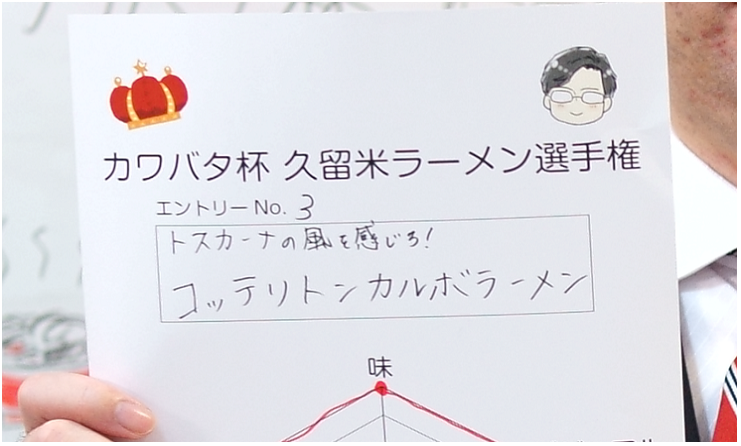 カワバタ杯 久留米ラーメン選手権
エントリーNo. 3
トスカーナの風を感じろ!
コッテリトンカルボラーメン
味